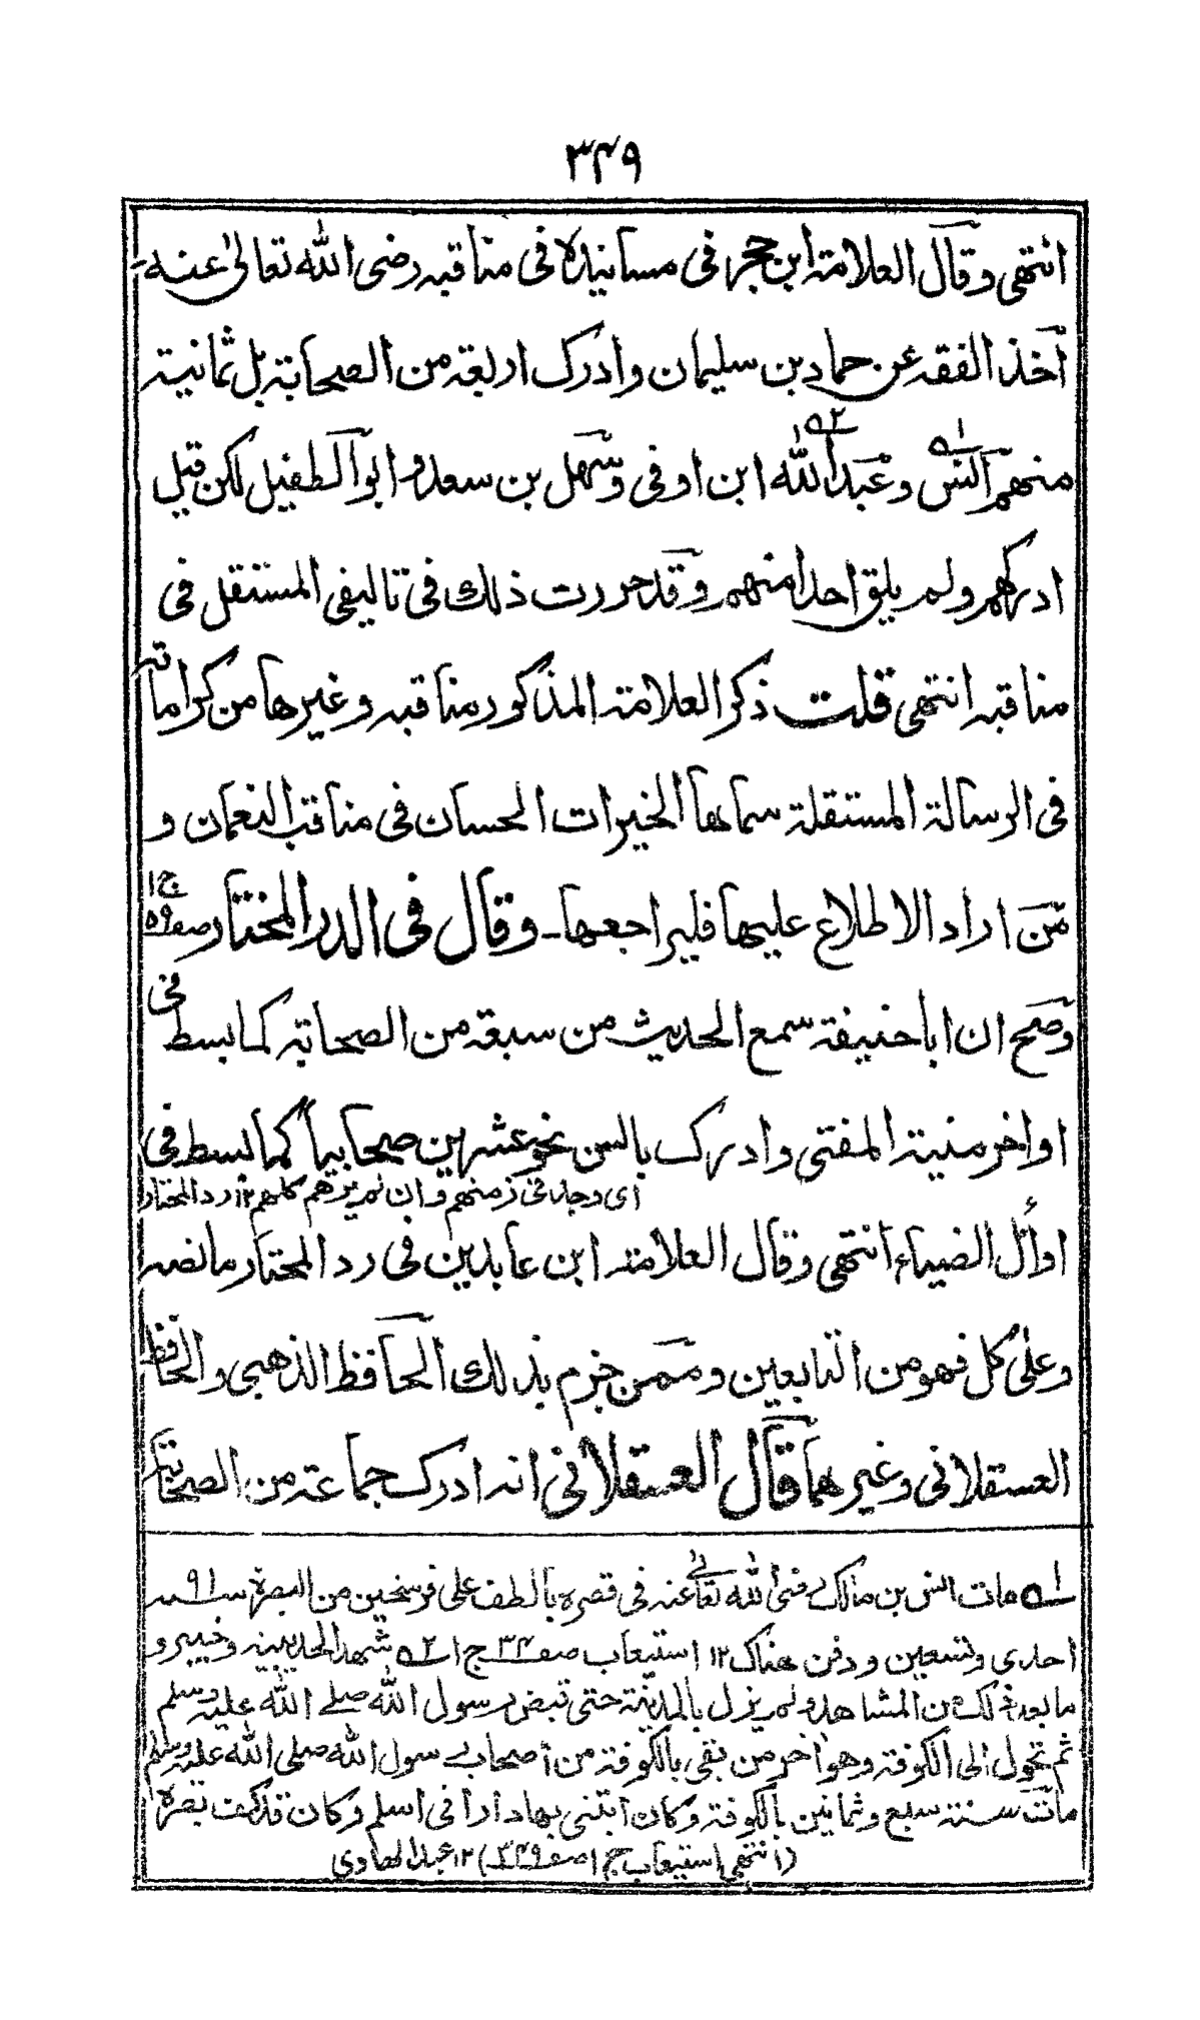 ۳۴۹
انتهى وقال العلامة ابن حجر في مسانيده في مناقبه رضى الله تعالىٰ عنه
أخذ الفقه عن حماد بن سليمان وادرك اربعة من الصحابة بل ثمانية
منهم انس وعبد الله ابن اوفى وسهل بن سعد و ابو الطفيل لكن قيل
ادركهم ولم يلق احدا منهم وقد حررت ذلك في تاليفي المستقل في
مناقبه انتهى قلت ذكر العلامة المذكور مناقبه وغيرها من كراماته
في الرسالة المستقلة سماها الخيرات الحسان في مناقب النعمان و
من اراد الاطلاع عليها فليراجعها۔ وقال في الدر المختار صـ۵۹ ج۱
وصح ان ابا حنيفة سمع الحديث من سبعة من الصحابة كما بسط في
اواخر منية المفتى وادرك بالسن نحو عشرين صحابياً كما بسط في
اى وجد في زمنهم وان لم يرهم كلهم ۱۲ رد المختار
اوائل الضياء انتهى وقال العلامة ابن عابدين في رد المختار ما نصه
وعلىٰ كل فهو من التابعين وممن جزم بذلك الحافظ الذهبي والحافظ
العسقلاني وغيرهما قال العسقلاني انه ادرك جماعة من الصحابة
۱ـه مات انس بن مالك رضى الله تعالىٰ عنه في قصره بالطف على فرسخين من البصرة سـ۹۱ـنه
احدى وتسعين ودفن هناك ۱۲ استيعاب صـ۳۴ ج۱ ۲ـه شهد الحديبية وخيبر و
ما بعد ذلك من المشاهد ولم يزل بالمدينة حتى قبض رسول الله صلے الله عليه وسلم
ثم تحول الى الكوفة وهو آخر من بقى بالكوفة من اصحاب رسول الله صلى الله عليه وسلم
مات سنة سبع وثمانين بالكوفة وكان ابتنى بها دارا في اسلم وكان قد كف بصره
(انتهى استيعاب ج۱ صـ۳۴۹) ۱۲ عبد الهادى